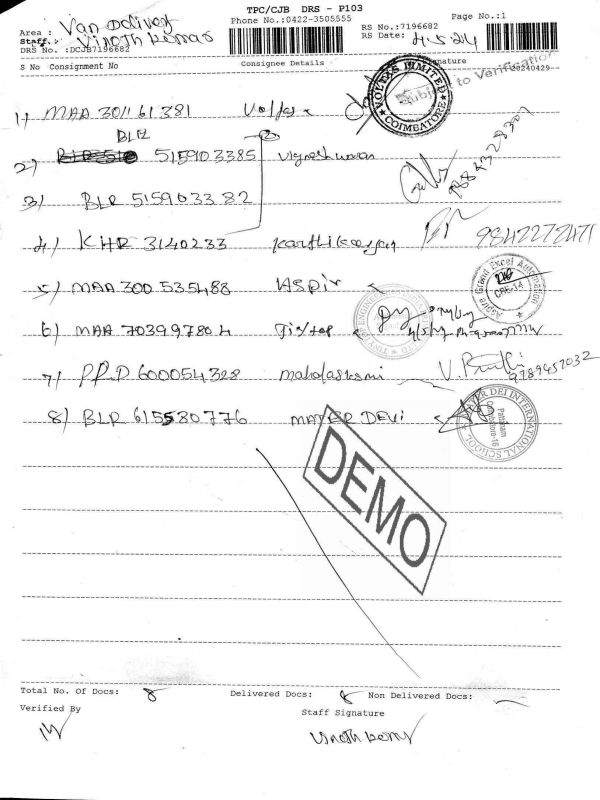 TPC/CJB DRS - P103
Phone No.:0422-3505555
Page No.:1
Area : Van Delivery
Staff.: Vinoth Kumar
DRS No. :DCJB7196682
RS No.:7196682
RS Date: 4.5.24
S No Consignment No Consignee Details Signature
Subject to Verification
20240429
VOLTAS LIMITED
COIMBATORE
1) MAA 301161381 Voltas
BLR
2) 515903385 Vigneshwaran
3) BLR 515903382
4) KHR 3140233 Karthikeyan 9842272471
5) MAA 300 535488 ASpir
Aspire Gland Excel Automation
CBE-14
6) MAA 703997804 Tixtop
7) PPD 600054328 mahalaksmi 9789457032
8) BLR 615580776 MATER DEVI
MATER DEI INTERNATIONAL SCHOOL
DEMO
Total No. Of Docs: 8 Delivered Docs: 8 Non Delivered Docs: —
Verified By
Staff Signature